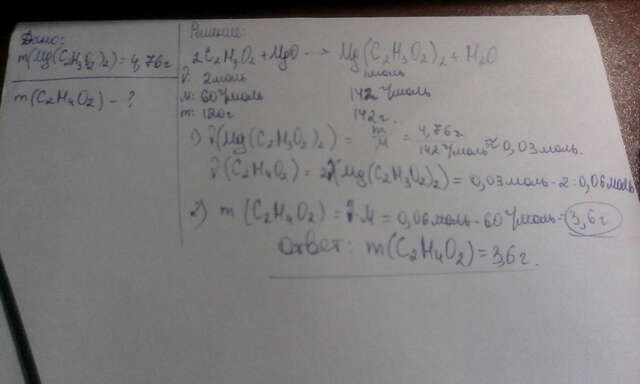 Дано:
m(Mg(C₂H₃O₂)₂)=4,76г
m(C₂H₄O₂) - ?
Решение:
2C₂H₄O₂ + MgO → Mg(C₂H₃O₂)₂ + H₂O
ν: 2моль 1моль
M: 60г/моль 142г/моль
m: 120г 142г.
1) ν(Mg(C₂H₃O₂)₂) = m/M = 4,76г/142г/моль ≈ 0,03моль.
ν(C₂H₄O₂) = 2ν(Mg(C₂H₃O₂)₂) = 0,03моль·2=0,06моль
2) m(C₂H₄O₂)=ν·M=0,06моль·60г/моль=3,6г
Ответ: m(C₂H₄O₂)=3,6г.